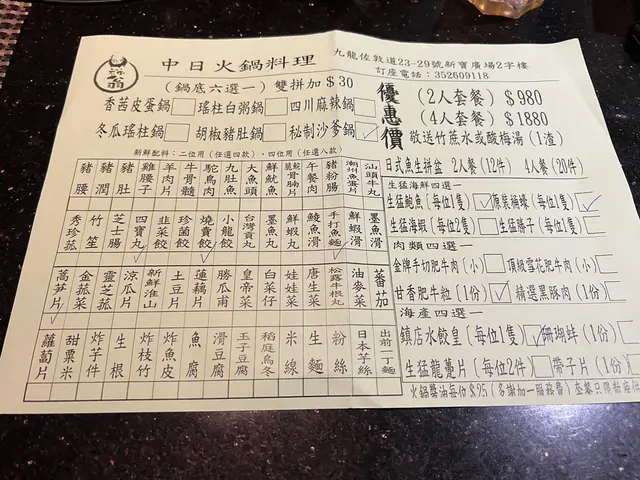 中日火鍋料理
九龍佐敦道23-29號新寶廣場2字樓
訂座電話：352609118
(鍋底六選一) 雙拼加$30
香茜皮蛋鍋 瑤柱白粥鍋 四川麻辣鍋
冬瓜瑤柱鍋 胡椒豬肚鍋 秘制沙爹鍋
優惠價
(2人套餐) $980
(4人套餐) $1880
敬送竹蔗水或酸梅湯(1渣)
新鮮配料：二位用(任選四款)、四位用(任選八款)
豬腰 豬潤 豬肚 雞腰子 羊肉片 牛骨髓 鴕鳥肉 九肚魚 大魚頭 鮮魷魚 午餐肉 豬粉腸 潮州魚蛋片 汕頭牛丸
秀珍菰 竹笙 芝士腸 四寶丸 韭菜餃 珍菌餃 燒賣餃 小龍餃 台灣貢丸 墨魚丸 鮮蝦丸 鯪魚滑 手打魚麵 鮮蝦滑 墨魚滑
萵笋片 金菰菜 靈芝菰 涼瓜片 新鮮淮山 土豆片 蓮藕片 勝瓜甫 皇帝菜 白菜仔 娃娃菜 唐生菜 松露牛根丸 油麥菜 蕃茄
蘿蔔片 甜粟米 炸芋件 生根 炸枝竹 炸魚皮 魚腐 滑豆腐 玉子豆腐 稻庭烏冬 米線 生麵 粉絲 日本芋絲 出前一丁麵
日式魚生拼盆 2人餐(12件) 4人餐(20件)
生猛海鮮四選一
生猛鮑魚(每位1隻) 原裝桶蠔(每位1隻)
生猛海蝦(每位2隻) 生猛勝子(每位1隻)
肉類四選一
金牌手切肥牛肉(小) 頂級雪花肥牛肉(小)
甘香肥牛粒(1份) 精選黑豚肉(1份)
海產四選一
鎮店水餃皇(每位1隻) 珊瑚蚌(1份)
生猛龍躉片(每位2件) 帶子片(1份)
火鍋醬油每位$25(多謝加一服務費)套餐只限對座